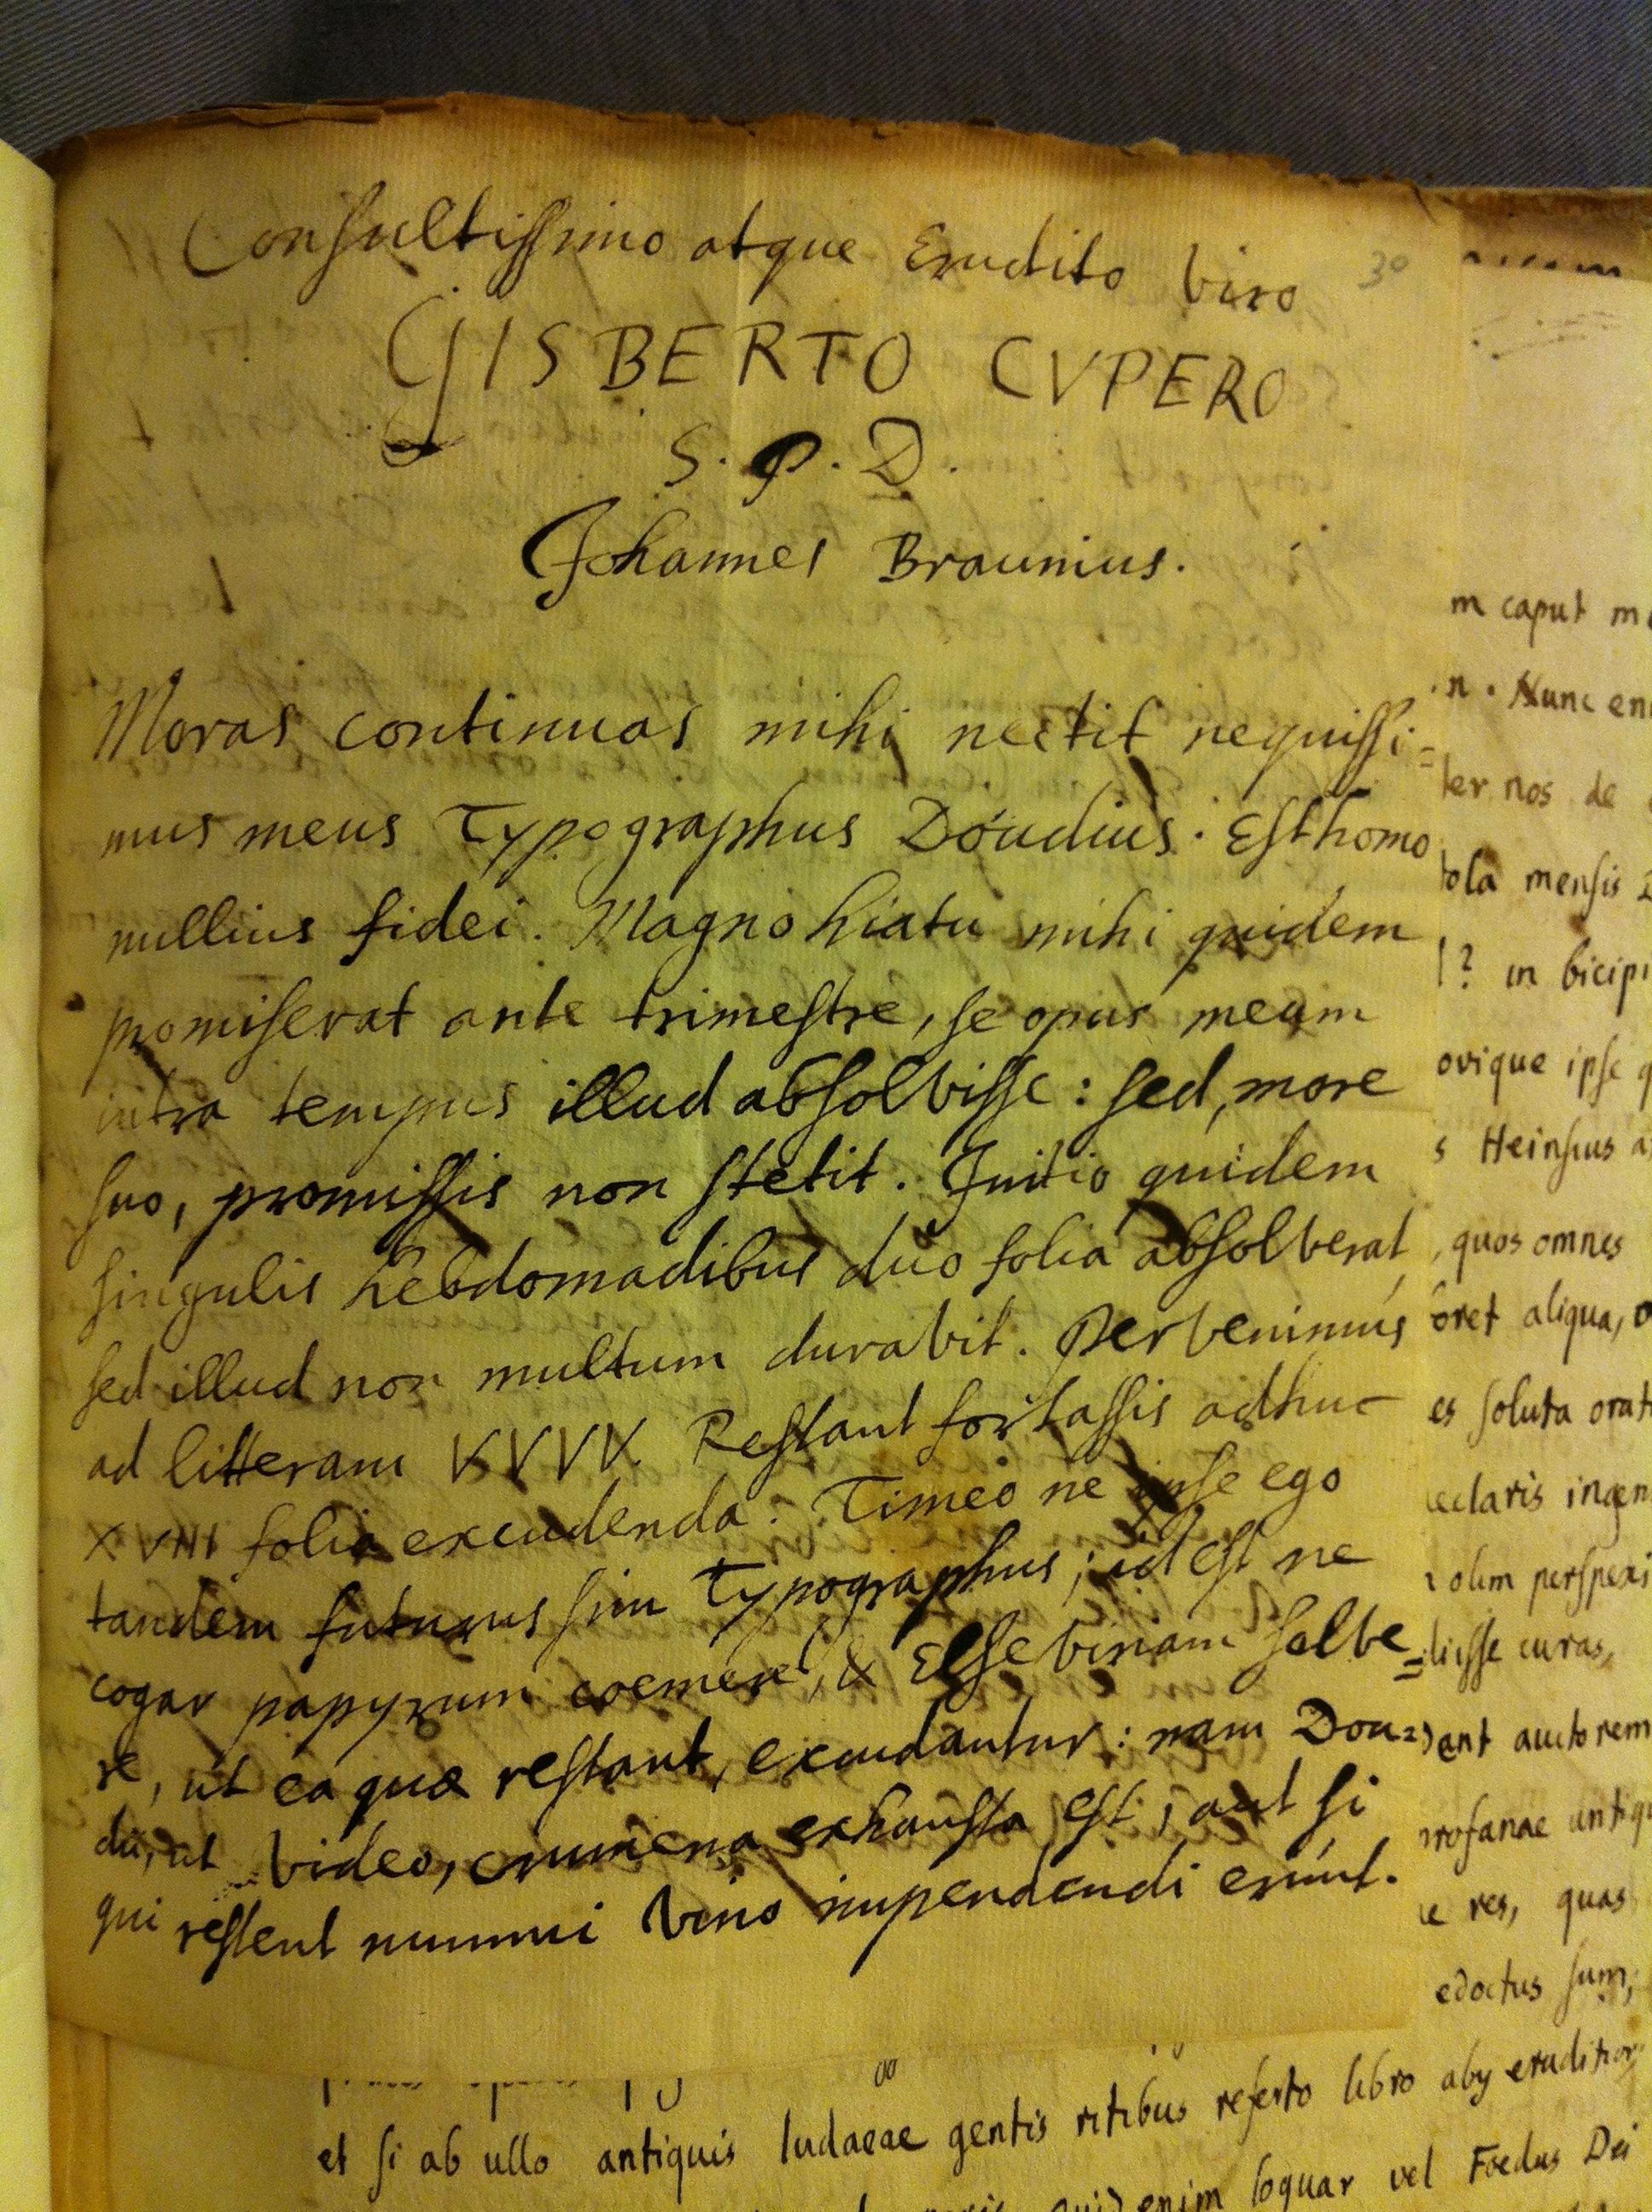 Consultissimo atque Erudito Viro
30
GISBERTO CVPERO
S. P. D.
Johannes Braunius.
Moras continuas mihi nectit nequissi=
mus meus Typographus Doudius. Est homo
nullius fidei. Magno hiatu mihi quidem
promiserat ante trimestre, se opus meum
intra tempus illud absolvisse: sed, more
suo, promissis non stetit. Initio quidem
singulis hebdomadibus duo folia absolverat,
sed illud non multum duravit. Pervenimus
ad litteram VVVV. Restant fortassis adhuc
XVIII folia excudenda. Timeo ne ipse ego
tandem futurus sim Typographus; id est ne
cogar papyrum coemere, & Elseviriam solve=
re, ut ea quæ restant, excudantur: nam Dou=
dii, ut video, crumena exhausta est, aut si
qui restent nummi vino impendendi erunt.
m caput
n. Nunc
ter nos de
tola mensis
? in bicipi
ovique ipse
s Heinsius
, quos omnes
oret aliqua,
es soluta orat
eclaris ingen
olim perspexi
disse curas,
ent auctorem
rofanae antiqu
e res, quas
edoctus sum,
et si ab ullo antiquis Iudaeae gentis ritibus referto libro abij eruditior
enim loquar vel Foedus Dei